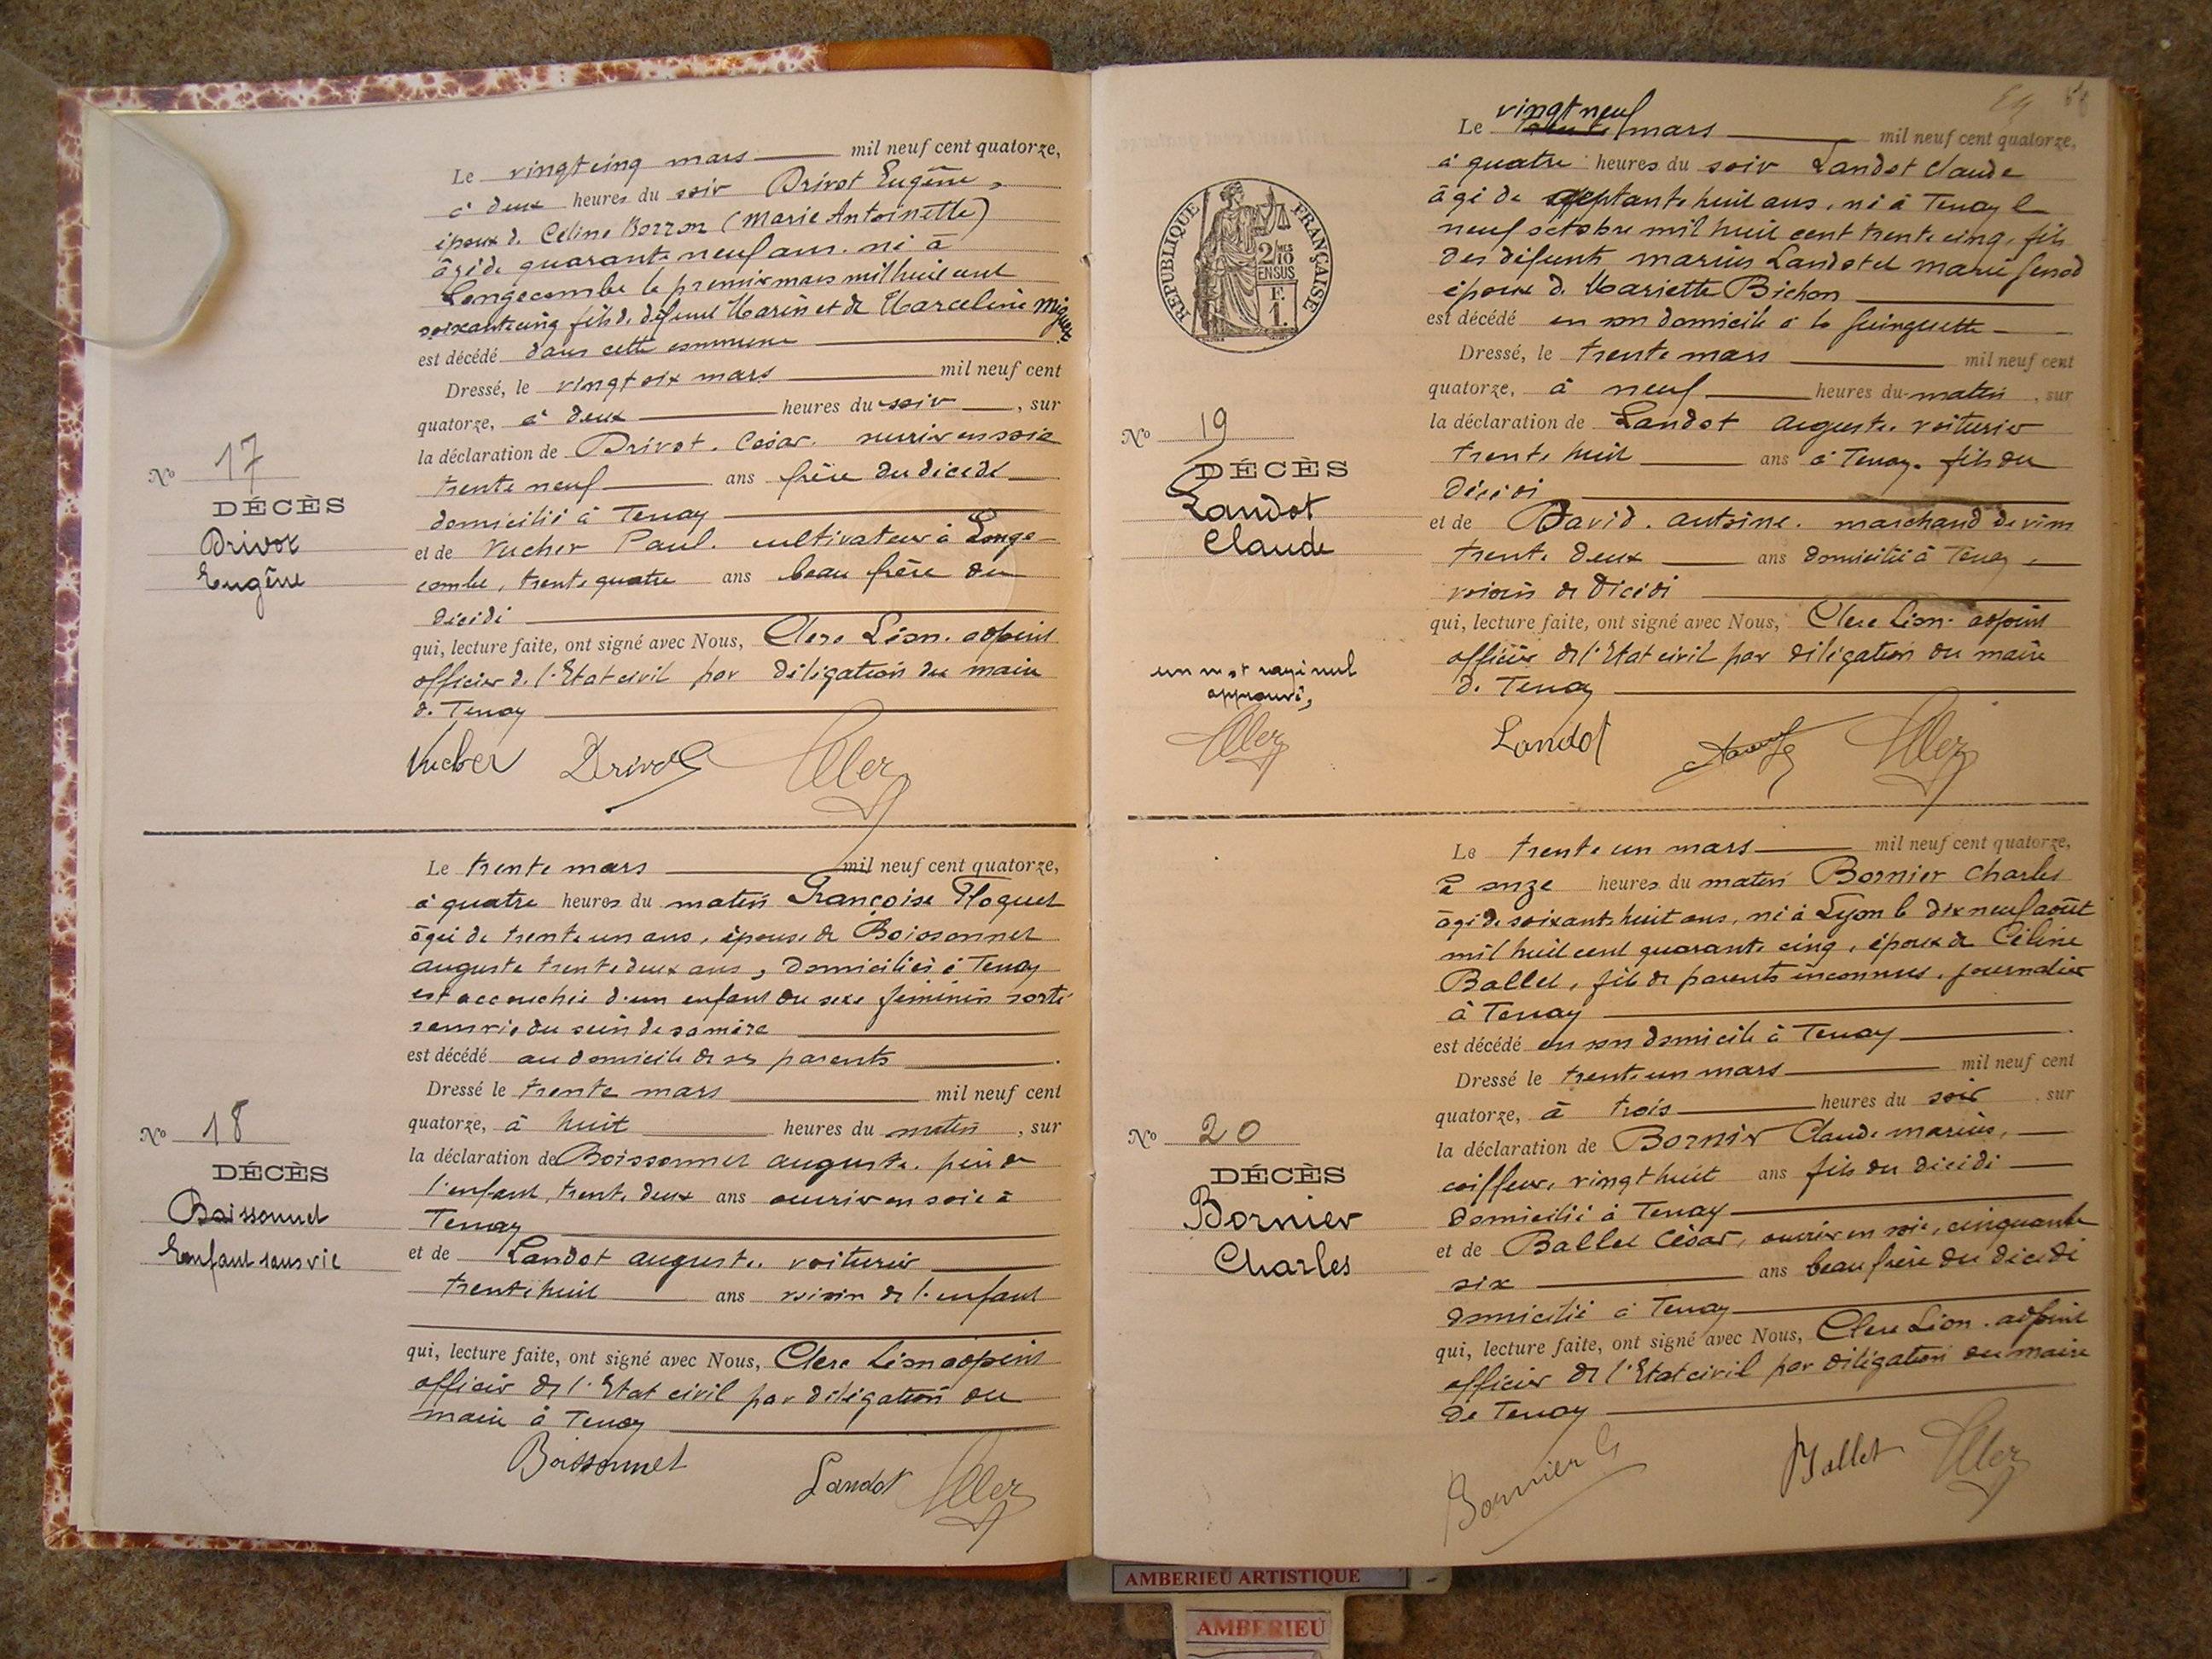 Le vingt cinq mars mil neuf cent quatorze,
à deux heures du soir Drivot Eugène,
époux de Céline Borron (Marie Antoinette)
âgé de quarante neuf ans. né à
Longecombe le premier mars mil huit cent
soixante cinq fils de défunt Marin et de Marceline
est décédé dans cette commune
Dressé, le vingt six mars mil neuf cent
quatorze, à deux heures du soir, sur
la déclaration de Drivot. César. ouvrier en soie
trente neuf ans frère du décédé
domicilié à Tenay
et de Vucher Paul. cultivateur à Longe-
combe, trente quatre ans beau frère du
décédé
qui, lecture faite, ont signé avec Nous, Clerc Léon. adjoint
officier de l'Etat civil par délégation du maire
de Tenay
No 17
DÉCÈS
Drivot
Eugène
Vucher Drivot Clerc
Le trente mars mil neuf cent quatorze,
à quatre heures du matin Françoise Floquet
âgée de trente un ans, épouse de Boissonnet
auguste trente deux ans, domiciliés à Tenay
est accouchée d'un enfant du sexe féminin sorti
sans vie du sein de sa mère
est décédé au domicile de ses parents
Dressé le trente mars mil neuf cent
quatorze, à huit heures du matin, sur
la déclaration de Boissonnet auguste. père de
l'enfant, trente deux ans ouvrier en soie à
Tenay
et de Landot auguste. voiturier
trente huit ans voisin de l'enfant
qui, lecture faite, ont signé avec Nous, Clerc Léon adjoint
officier de l'Etat civil par délégation du
maire à Tenay
No 18
DÉCÈS
Boissonnet
Enfant sans vie
Boissonnet Landot Clerc
Le vingt neuf mars mil neuf cent quatorze,
à quatre heures du soir Landot Claude
âgé de septante huit ans, né à Tenay le
neuf octobre mil huit cent trente cinq, fils
des défunts marius Landot et marie
époux de Mariette Bichon
est décédé en son domicile à la guinguette
Dressé, le trente mars mil neuf cent
quatorze, à neuf heures du matin, sur
la déclaration de Landot auguste. voiturier
trente huit ans à Tenay. fils du
décédé
et de David. antoine. marchand de vins
trente deux ans domicilié à Tenay
voisin de décédé
qui, lecture faite, ont signé avec Nous, Clerc Léon. adjoint
officier de l'Etat civil par délégation du maire
de Tenay
REPUBLIQUE FRANÇAISE
2/10 MES
EN SUS
F.
1.
No 19
DÉCÈS
Landot
Claude
un mot rayé nul
approuvé,
Clerc
Landot Clerc
Le trente un mars mil neuf cent quatorze,
à onze heures du matin Bornier Charles
âgé de soixante huit ans, né à Lyon le dix neuf août
mil huit cent quarante cinq, époux de Céline
Ballet, fils de parents inconnus, journalier
à Tenay
est décédé en son domicile à Tenay
Dressé le trente un mars mil neuf cent
quatorze, à trois heures du soir, sur
la déclaration de Bornier Claude marius,
coiffeur, vingt huit ans fils du décédé
domicilié à Tenay
et de Ballet César, ouvrier en soie, cinquante
six ans beau frère du décédé
domicilié à Tenay
qui, lecture faite, ont signé avec Nous, Clerc Léon. adjoint
officier de l'Etat civil par délégation du maire
de Tenay
No 20
DÉCÈS
Bornier
Charles
Bornier C Ballet Clerc
AMBERIEU ARTISTIQUE
AMBERIEU